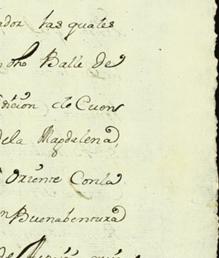 ador las quales
oho Balle de
dicion de Cuen
dela Magdalena,
Oriente Con la
n Buenabentura
de